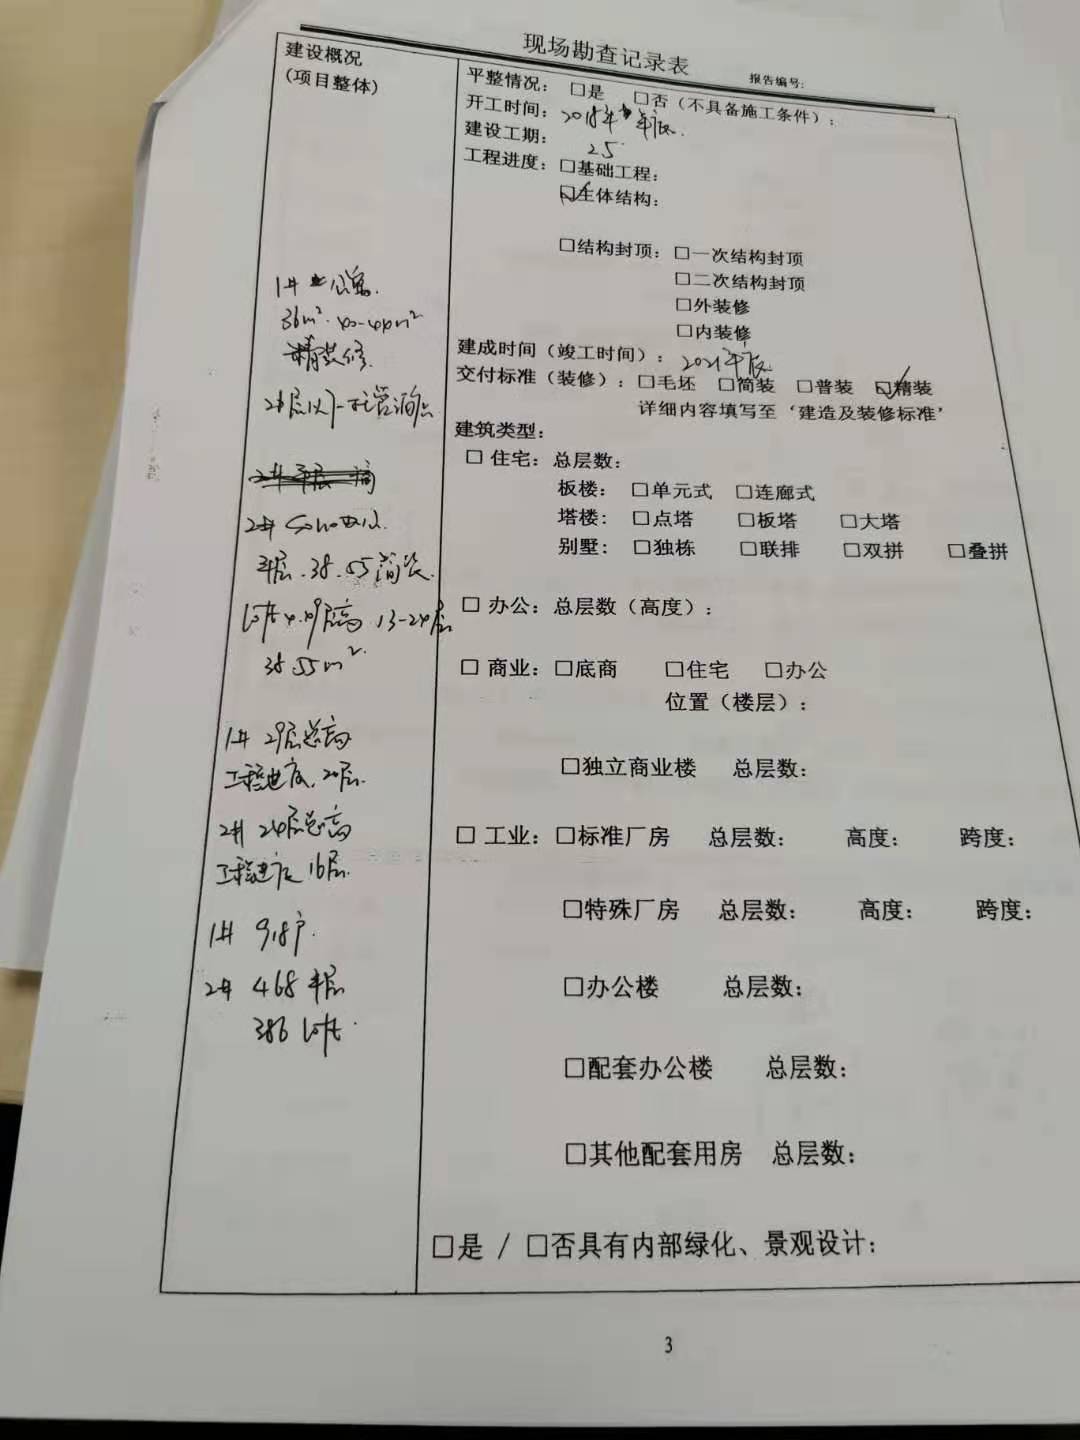 现场勘查记录表
报告编号:
建设概况
(项目整体)
1# 公寓.
36m². 40-44m²
精装修.
2# Soho
平层.38.55简装.
loft 4.49层高 13-24层
38.55m²
1# 29层总高
工程进度.20层.
2# 24层总高
工程进度 16层.
1# 918户.
2# 468 平层
386 loft.
平整情况: □是 □否(不具备施工条件):
开工时间: 2018年 年底.
建设工期: 25
工程进度: □基础工程:
☑主体结构:
□结构封顶: □一次结构封顶
□二次结构封顶
□外装修
□内装修
建成时间(竣工时间): 2021年底
交付标准(装修): □毛坯 □简装 □普装 ☑精装
详细内容填写至‘建造及装修标准’
建筑类型:
□ 住宅: 总层数:
板楼: □单元式 □连廊式
塔楼: □点塔 □板塔 □大塔
别墅: □独栋 □联排 □双拼 □叠拼
□ 办公: 总层数(高度):
□ 商业: □底商 □住宅 □办公
位置(楼层):
□独立商业楼 总层数:
□ 工业: □标准厂房 总层数: 高度: 跨度:
□特殊厂房 总层数: 高度: 跨度:
□办公楼 总层数:
□配套办公楼 总层数:
□其他配套用房 总层数:
□是 / □否具有内部绿化、景观设计:
3